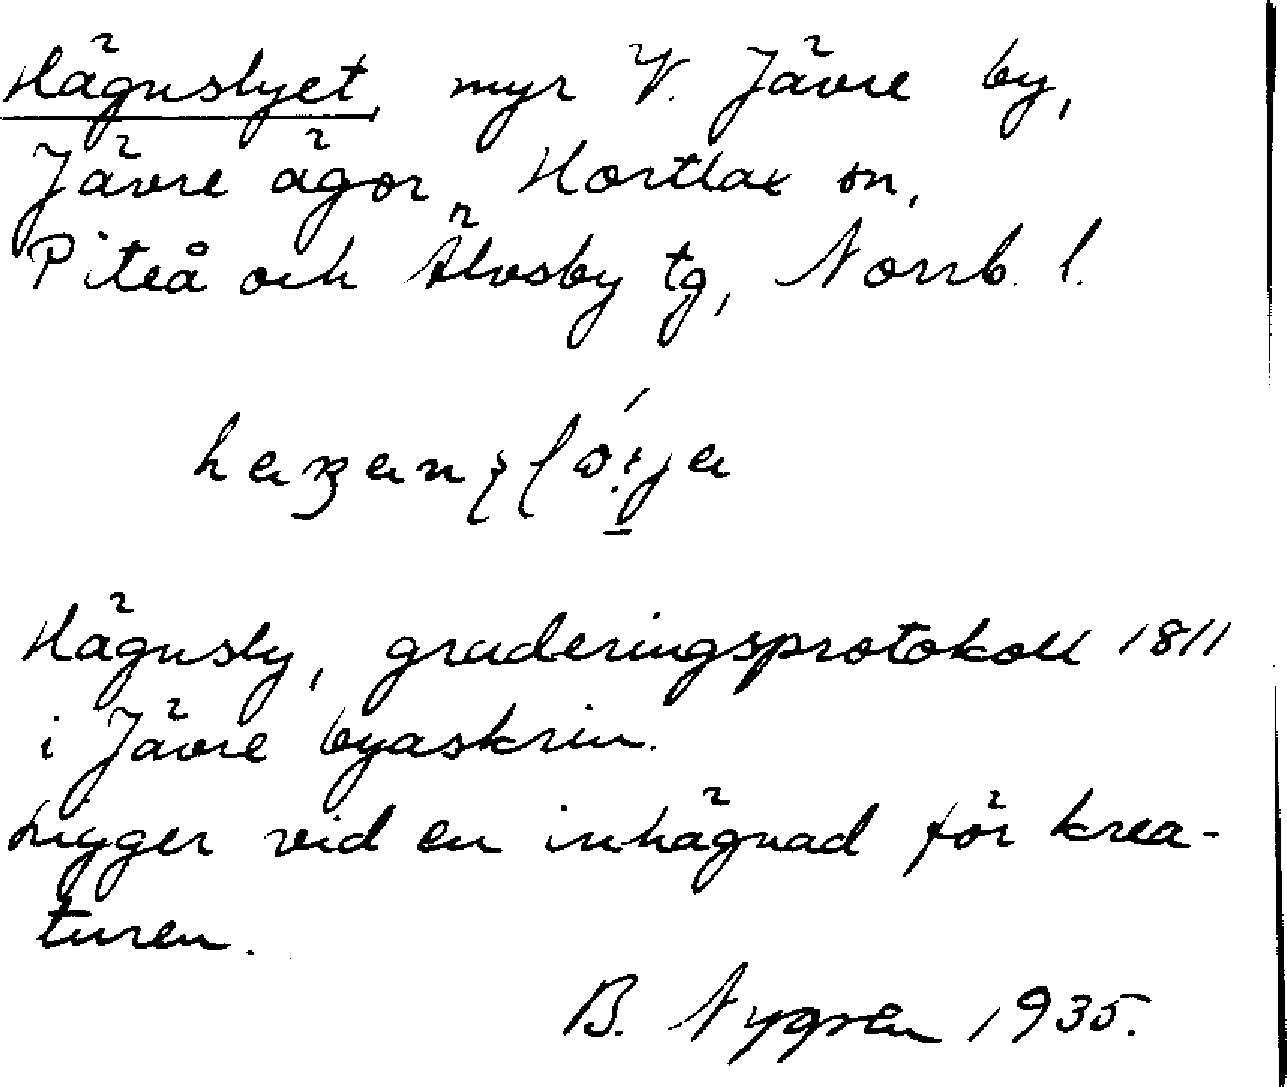 Hägnslyet, myr V. Jävre by,
Jävre ägor, Hortlax sn,
Piteå och Älvsby tg, Norrb. l.
Hägnsly, graderingsprotokoll 1811
i Jävre byaskrin.
Ligger vid en inhägnad för krea-
turen.
B. Nygren 1935.